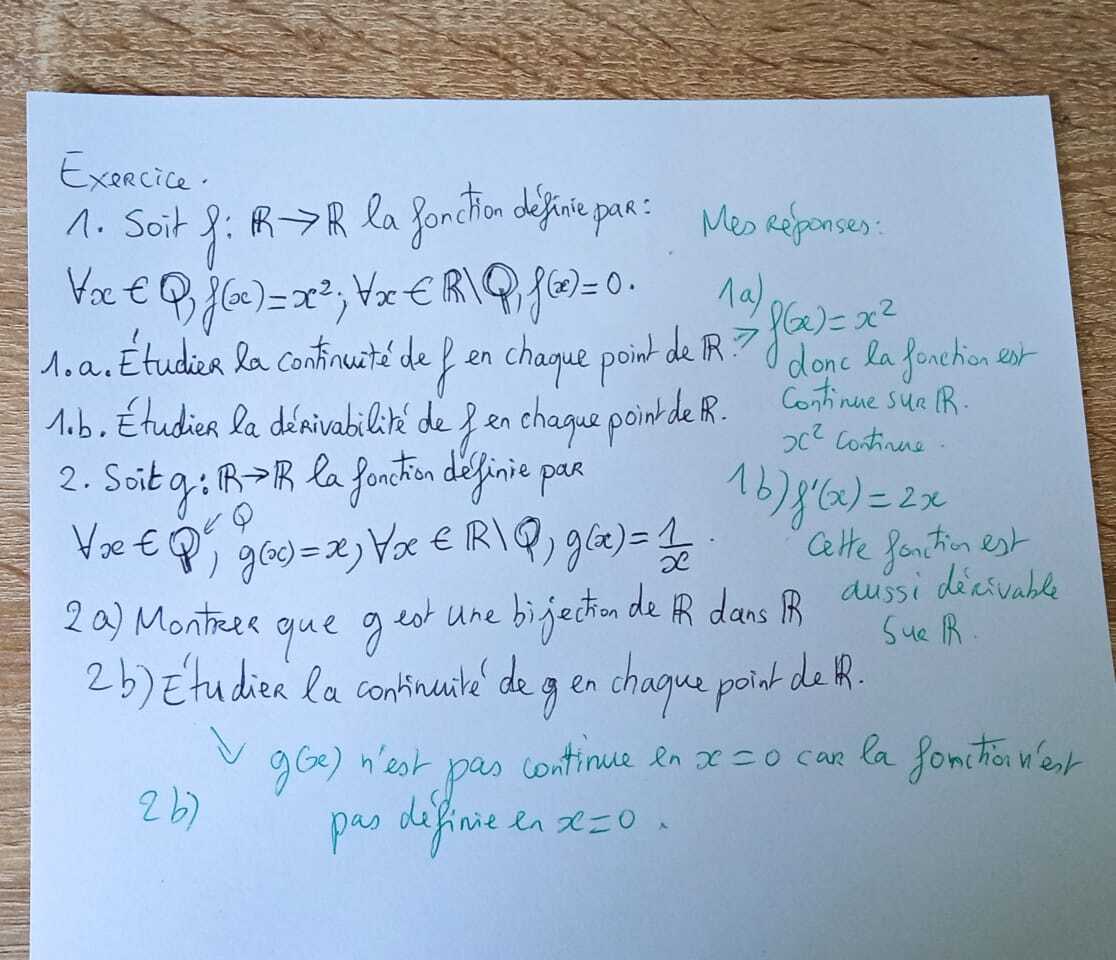 Exercice.
1. Soit f: ℝ→ℝ la fonction définie par:
∀x ∈ ℚ, f(x)=x²; ∀x ∈ ℝ\ℚ, f(x)=0.
1.a. Étudier la continuité de f en chaque point de ℝ.
1.b. Étudier la dérivabilité de f en chaque point de ℝ.
2. Soit g: ℝ→ℝ la fonction définie par
↙ Q
∀x ∈ ℚ, g(x)=x, ∀x ∈ ℝ\ℚ, g(x)=1/x.
2a) Montrer que g est une bijection de ℝ dans ℝ
2b) Étudier la continuité de g en chaque point de ℝ.
Mes réponses:
1a)
⇒ f(x)=x²
donc la fonction est
continue sur ℝ.
x² continue.
1b) f'(x)=2x
Cette fonction est
aussi dérivable
sur ℝ.
↘ g(x) n'est pas continue en x=0 car la fonction n'est
2b) pas définie en x=0.